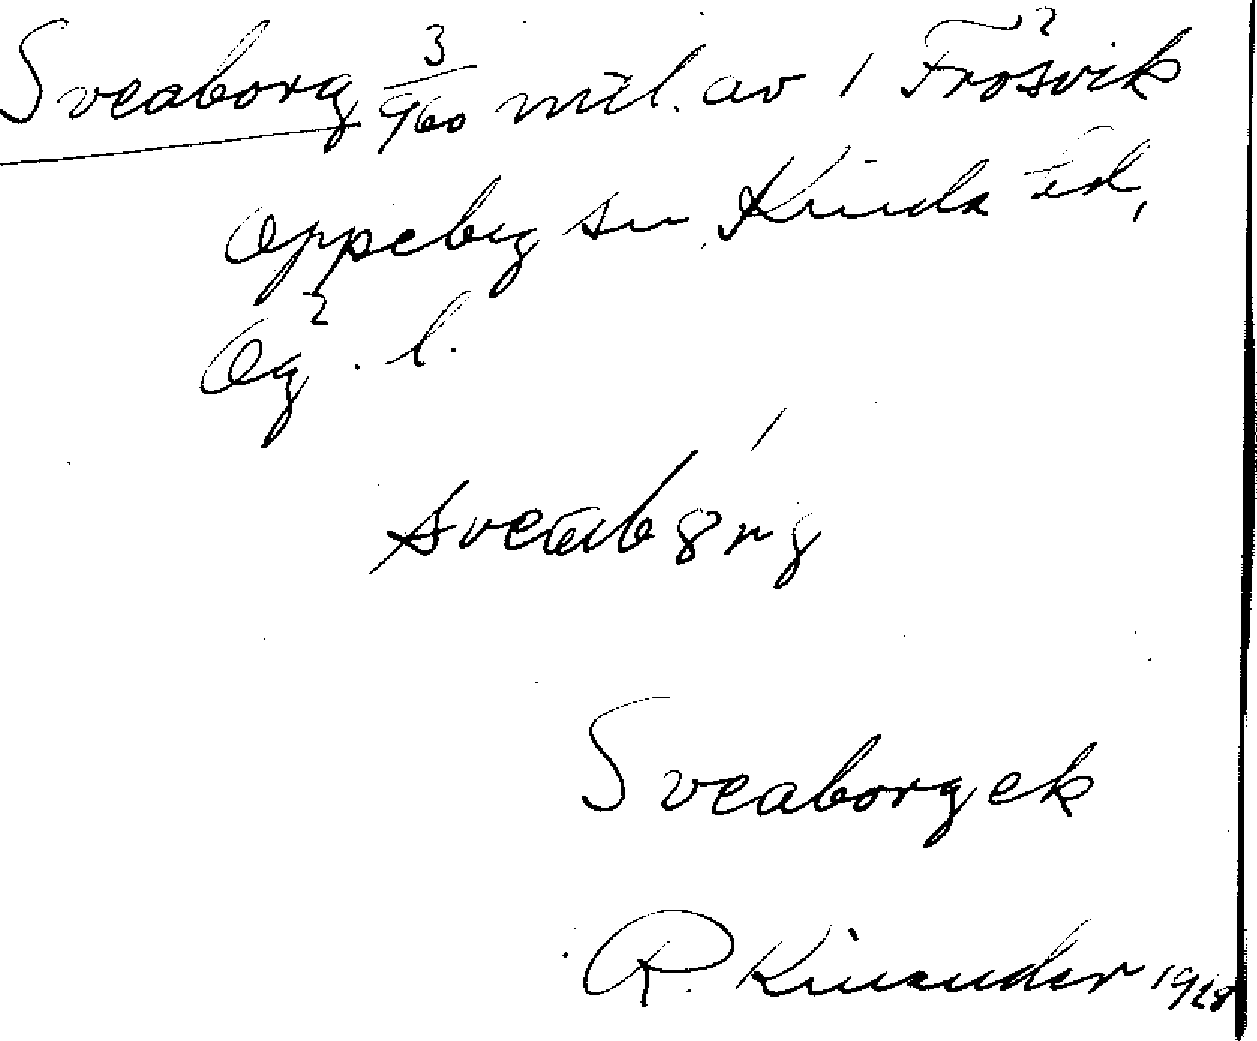 Sveaborg 3/960 mtl. av 1 Frösvik
Oppeby sn Kinda hd,
Ög. l.
Sveaborgek
R. Kinander 1928